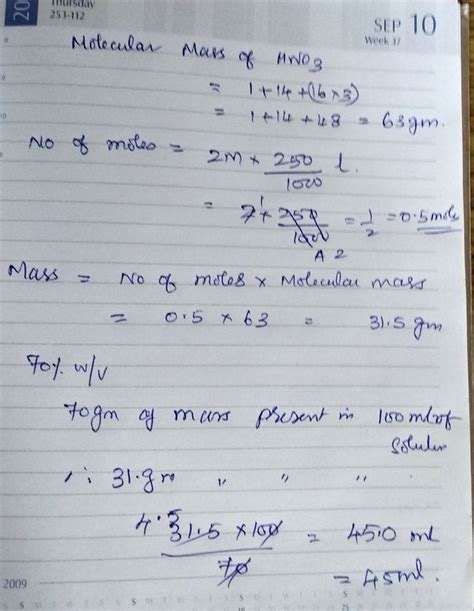 20
Thursday
253-112
SEP 10
Week 37
Molecular Mass of HNO3
= 1+14+(16×3)
= 1+14+48 = 63gm.
No of moles = 2M × 250/1000 l.
= 2 × 250/1000 = 1/2 = 0.5 mole
4 2
Mass = No of moles × Molecular mass
= 0.5 × 63 = 31.5 gm
70% w/v
70gm of mass present in 100 ml of
solution
∴ 31.gm " " "
4.5
31.5 × 100/70 = 45.0 ml
= 45ml.
2009